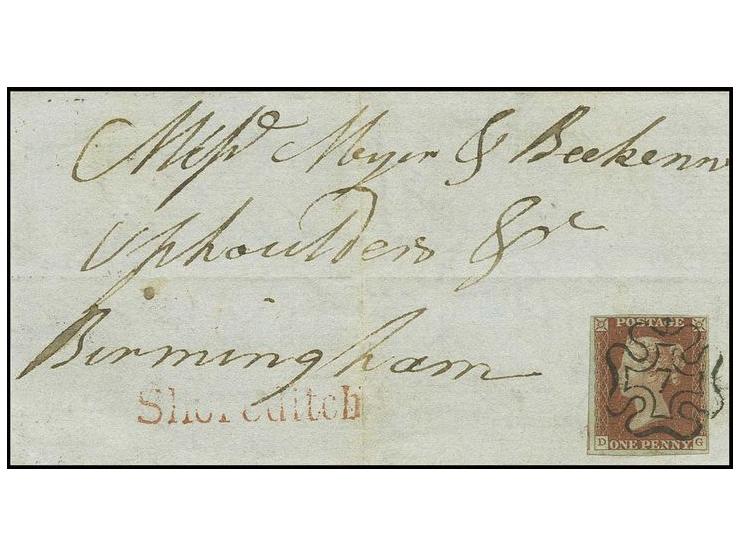 Messrs Meyer & Beekenn
Uphoulders &c
Birmingham
Shoreditch
POSTAGE
7
D ONE PENNY G